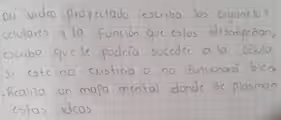 Del video proyectado escriba los organelos
celulares y la función que estos desempeñan,
escriba que le podría suceder a la célula
si este no existiera o no funcionara bien
. Realiza un mapa mental donde se plasman
estas ideas